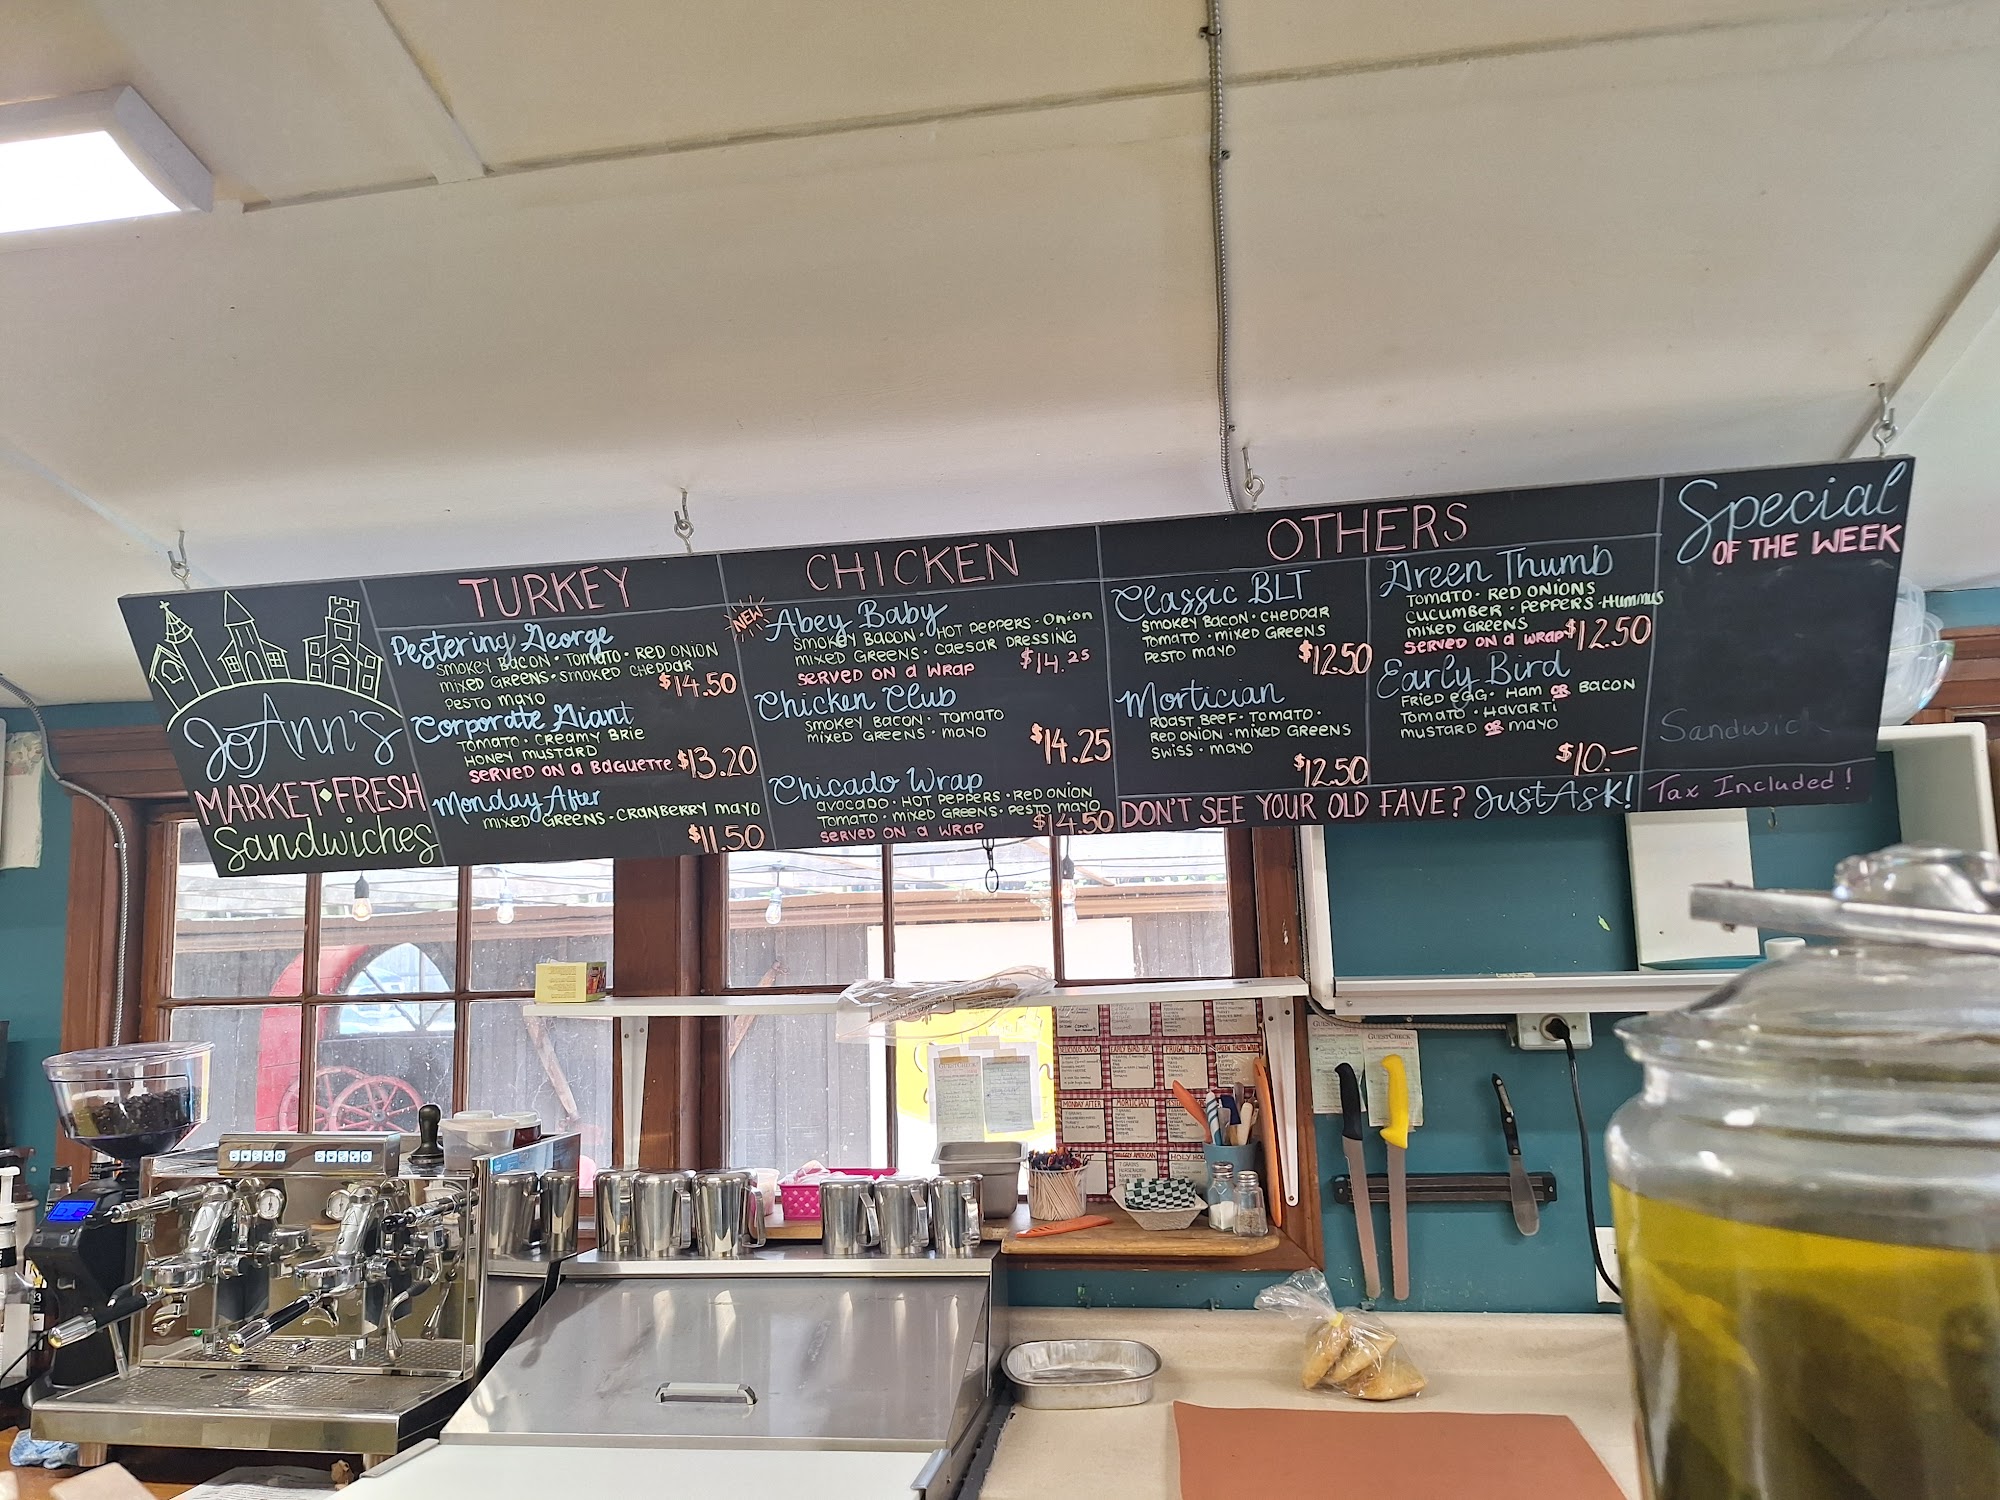 JoAnn's
MARKET FRESH
Sandwiches
TURKEY
Pestering George
SMOKEY BACON · TOMATO · RED ONION
MIXED GREENS · SMOKED CHEDDAR
PESTO MAYO
$14.50
Corporate Giant
TOMATO · CREAMY BRIE
HONEY MUSTARD
SERVED ON A BAGUETTE $13.20
Monday After
MIXED GREENS · CRANBERRY MAYO
$11.50
CHICKEN
NEW
Abey Baby
SMOKEY BACON · HOT PEPPERS · Onion
MIXED GREENS · CAESAR DRESSING
SERVED ON A WRAP $14.25
Chicken Club
SMOKEY BACON · TOMATO
MIXED GREENS · MAYO
$14.25
Chicado Wrap
AVOCADO · HOT PEPPERS · RED ONION
TOMATO · MIXED GREENS · PESTO MAYO
SERVED ON A WRAP $14.50
OTHERS
Classic BLT
SMOKEY BACON · CHEDDAR
TOMATO · MIXED GREENS
PESTO MAYO
$12.50
Mortician
ROAST BEEF · TOMATO ·
RED ONION · MIXED GREENS
SWISS · MAYO
$12.50
Green Thumb
TOMATO · RED ONIONS
CUCUMBER · PEPPERS · HUMMUS
MIXED GREENS
SERVED ON A WRAP $12.50
Early Bird
FRIED EGG · HAM OR BACON
TOMATO · HAVARTI
MUSTARD OR MAYO
$10.—
DON'T SEE YOUR OLD FAVE? Just Ask!
Special
OF THE WEEK
Sandwich
Tax Included!
GUESTCHECK
FRUGAL FRED
MONDAY AFTER
MORTICIAN